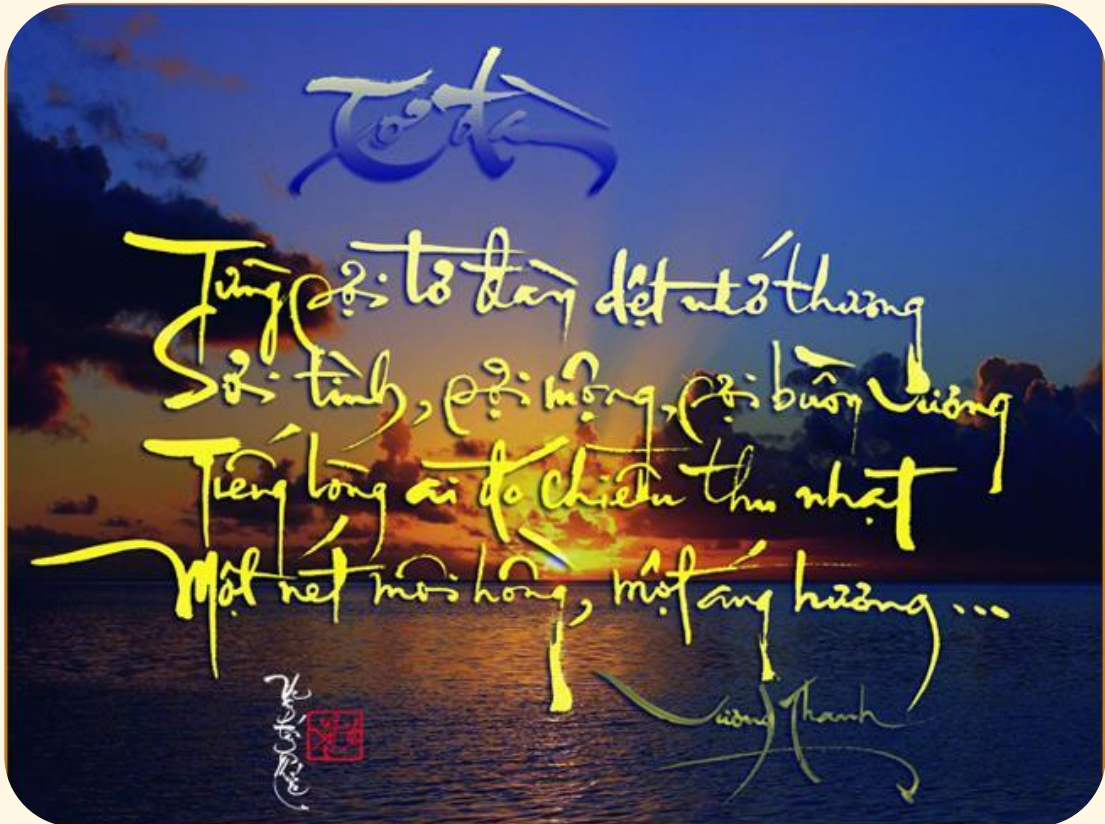 Tơ đàn
Từng sợi tơ đàn dệt nhớ thương
Sợi tình, sợi mộng, sợi buồn vương
Tiếng lòng ai đó chiều thu nhạt
Một nét môi hồng, một áng hương ...
Vương Thanh